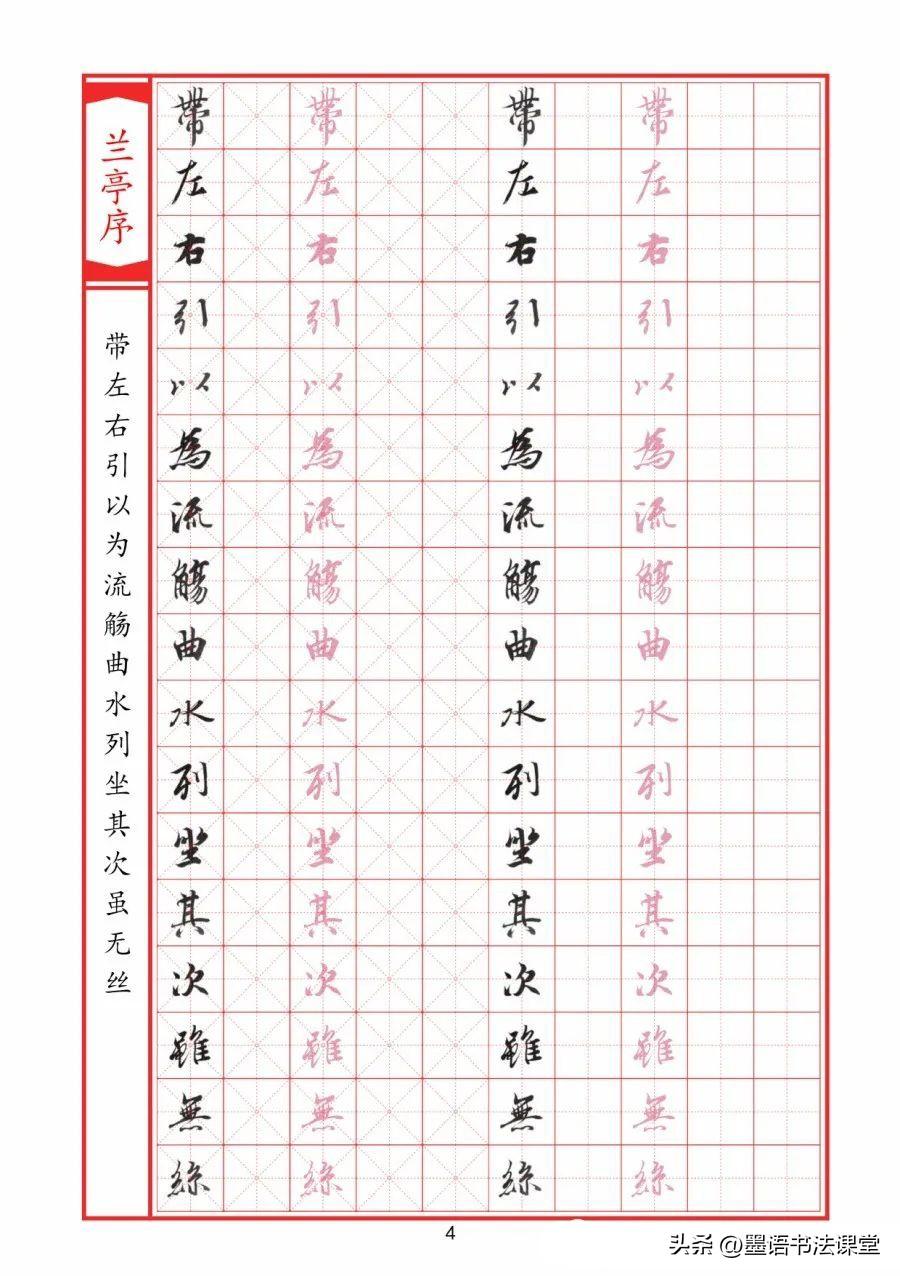 兰亭序
带左右引以为流觞曲水列坐其次虽无丝
帶 帶 帶 帶
左 左 左 左
右 右 右 右
引 引 引 引
以 以 以 以
為 為 為 為
流 流 流 流
觴 觴 觴 觴
曲 曲 曲 曲
水 水 水 水
列 列 列 列
坐 坐 坐 坐
其 其 其 其
次 次 次 次
雖 雖 雖 雖
無 無 無 無
絲 絲 絲 絲
4
头条 @墨语书法课堂